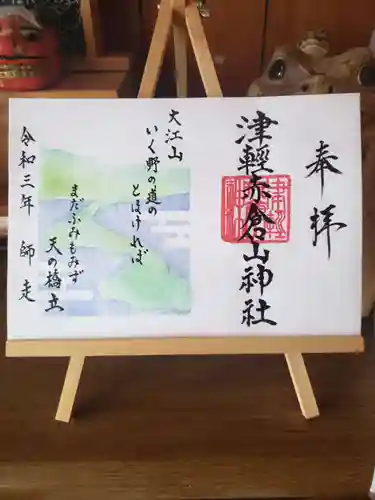 奉拝
津軽赤倉山神社
大江山
いく野の道の
とほければ
まだふみもみず
天の橋立
令和三年 師走